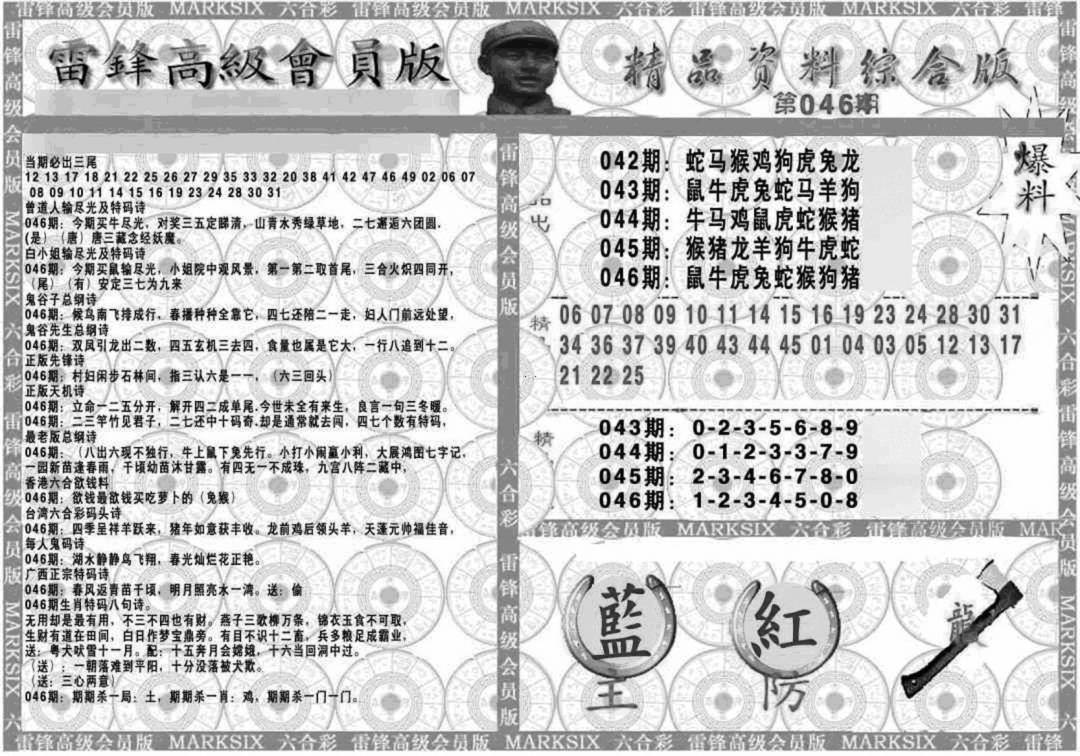 雷锋高级会员版 MARKSIX 六合彩 雷锋高级会员版 MARKSIX 六合彩 雷锋高级会员版 MARKSIX 六合彩 雷锋
雷鋒高級會員版
精品资料综合版
第046期
爆料
当期必出三尾
12 13 17 18 21 22 25 26 27 29 35 33 32 20 38 41 42 47 46 49 02 06 07
08 09 10 11 14 15 16 19 23 24 28 30 31
曾道人输尽光及特码诗
046期：今期买牛尽光，对奖三五定睇清，山青水秀绿草地，二七邂逅六团圆.
(是）（唐）唐三藏念经妖魔。
白小姐输尽光及特码诗
046期：今期买鼠输尽光，小姐院中观风景，第一第二取首尾，三合火炽四同开，
（尾）（有）安定三七为九来
鬼谷子总纲诗
046期：候鸟南飞排成行，春播种种全靠它，四七还陪二一走，妇人门前远处望，
鬼谷先生总纲诗
046期：双凤引龙出二数，四五玄机三去四，食量也属是它大，一行八追到十二。
正版先锋诗
046期：村妇闲步石林间，指三认六是一一，（六三回头）
正版天机诗
046期：立命一二五分开，解开四二成单尾.今世未全有来生，良言一句三冬暖。
046期：二三竿竹见君子，二七还中十码奇.却是通常就去闯，四七个数有特码，
最老版总纲诗
046期：（八出六现不独行，牛上鼠下兔先行。小打小闹赢小利，大展鸿图七字记，
一园新苗逢春雨，千顷幼苗沐甘露。有四无一不成珠，九宫八阵二藏中，
香港六合欲钱料
046期：欲钱最欲钱买吃萝卜的（兔猴）
台湾六合彩码头诗
046期：四季呈祥羊跃来，猪年如意获丰收。龙前鸡后领头羊，天蓬元帅福佳音，
每人鬼码诗
046期：湖水静静鸟飞翔，春光灿烂花正艳。
广西正宗特码诗
046期：春风返青苗千顷，明月照亮水一湾。送：偷
046期生肖特码八句诗。
无用却是最有用，不三不四也有财。燕子三歌柳万条，锦衣玉食不可取，
生财有道在田间，白日作梦宝鼎旁。有目不识十二畜，兵多粮足成霸业，
送：粤犬吠雪十一月。配：十五奔月会嫦娥，十六当回洞中过。
（送）：一朝落难到平阳，十分没落被犬欺。
（送：三心两意）
046期：期期杀一局：土，期期杀一肖：鸡，期期杀一门一门。
042期：蛇马猴鸡狗虎兔龙
043期：鼠牛虎兔蛇马羊狗
044期：牛马鸡鼠虎蛇猴猪
045期：猴猪龙羊狗牛虎蛇
046期：鼠牛虎兔蛇猴狗猪
精
06 07 08 09 10 11 14 15 16 19 23 24 28 30 31
34 36 37 39 40 43 44 45 01 04 03 05 12 13 17
21 22 25
精
043期：0-2-3-5-6-8-9
044期：0-1-2-3-3-7-9
045期：2-3-4-6-7-8-0
046期：1-2-3-4-5-0-8
雷锋高级会员版 MARKSIX 六合彩 雷锋高级会员版 MARK
藍
主
紅
防
龍
雷锋高级会员版 MARKSIX 六合彩 雷锋高级会员版 MARKSIX 六合彩 雷锋高级会员版 MARKSIX 六合彩 雷锋